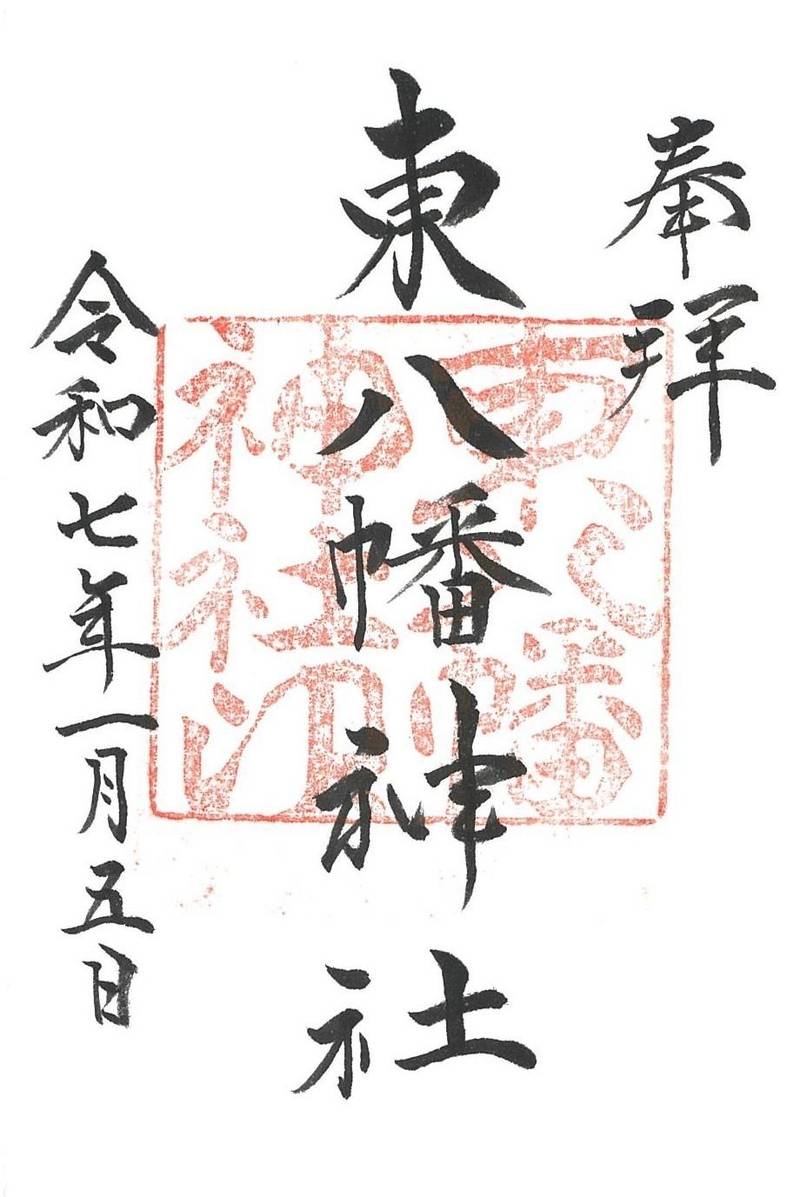 奉拝
東八幡神社
東八幡神社印
令和七年一月五日